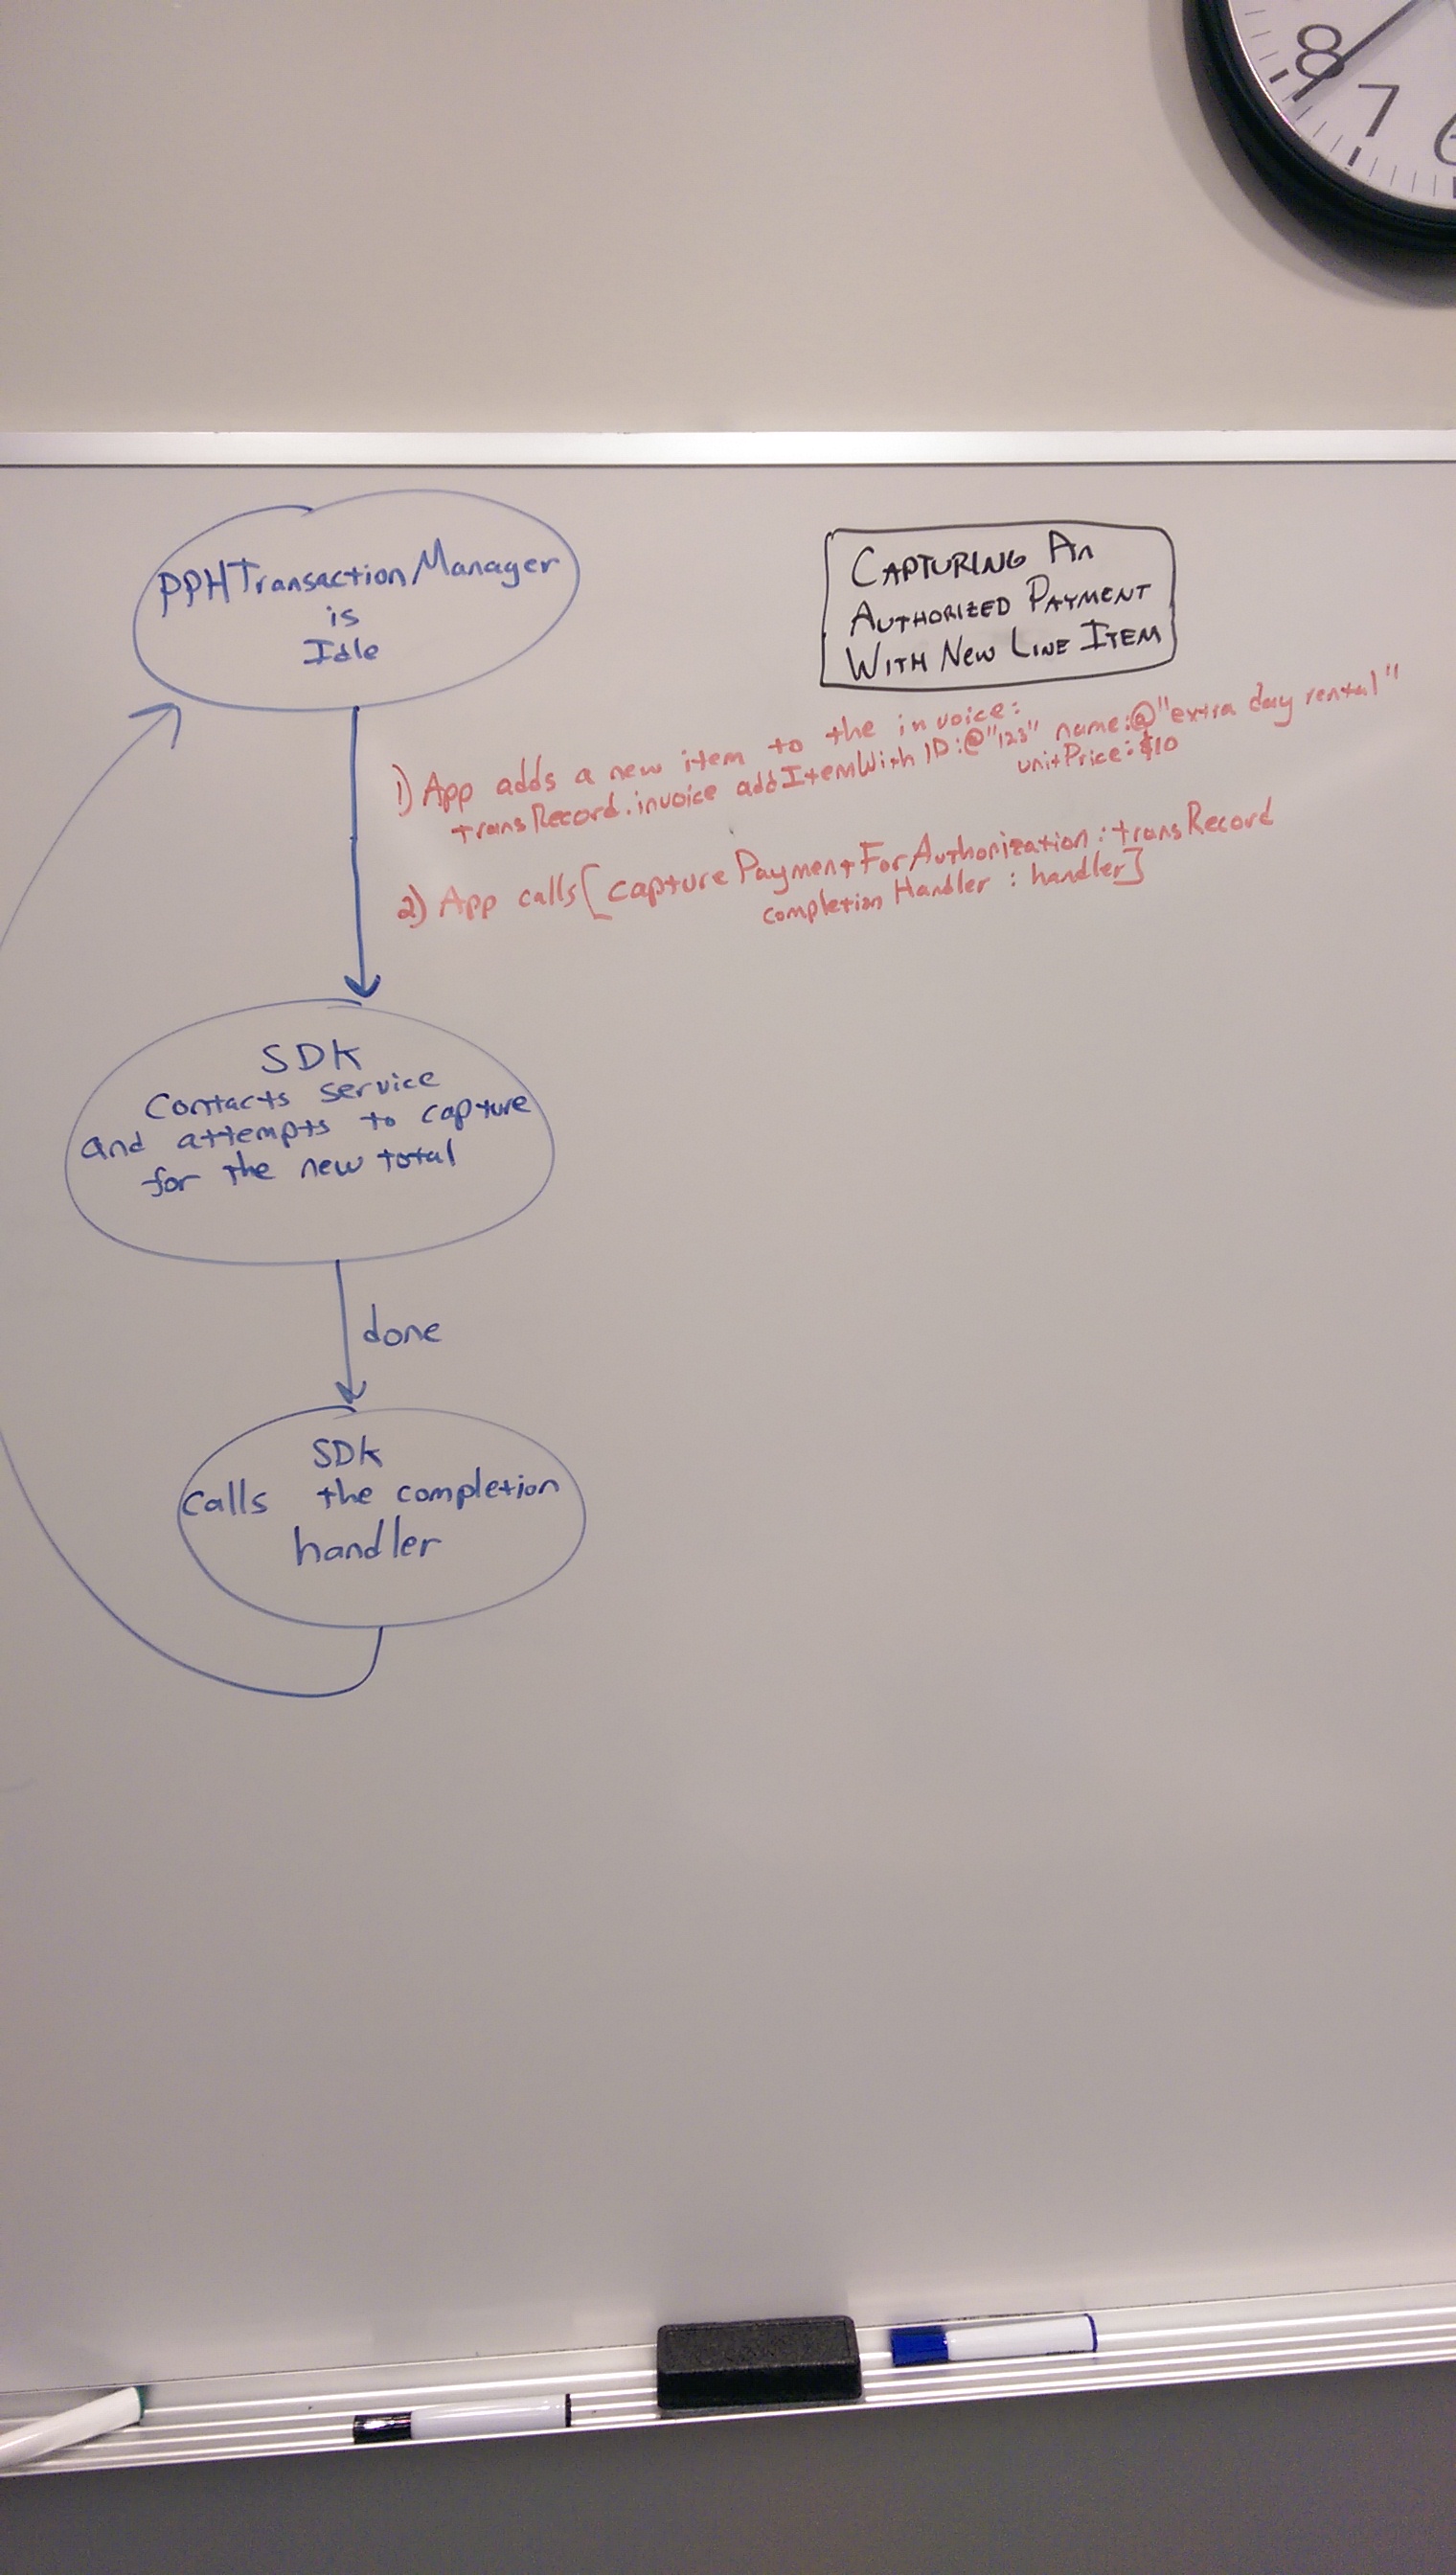 8
7
6
PPHTransactionManager
is
Idle
CAPTURING An
AUTHORIZED PAYMENT
WITH NEW LINE ITEM
1) App adds a new item to the invoice:
transRecord.invoice addItemWithID:@"123" name:@"extra day rental"
unitPrice:$10
2) App calls [capturePaymentForAuthorization:transRecord
completionHandler: handler]
SDK
Contacts service
and attempts to capture
for the new total
done
SDK
calls the completion
handler